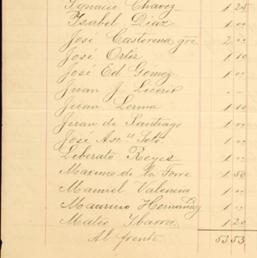 Ignacio Chavez 1 25
Isabel Diaz 1 00
José Castorena gte 2 00
José Ortiz 1 10
José Ed Gomez 1 00
Juan J. Licerio
Juan Lerma 1 10
Juan de Santiago 1 00
José Asc.n Soto 1 00
Liberato Reyes 1 00
Maximo de la Torre 1 50
Manuel Valencia 1 00
Mauricio Hernandez 1 00
Mateo Ybarra 1 20
Al frente 53 53